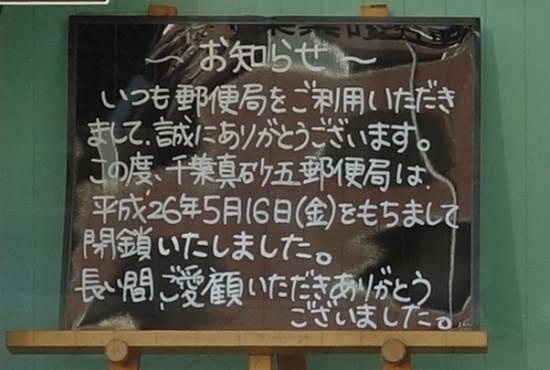 ～お知らせ～
いつも郵便局をご利用いただき
まして、誠にありがとうございます。
この度、千葉真砂五郵便局は、
平成26年5月16日(金)をもちまして
閉鎖いたしました。
長い間、ご愛顧いただきありがとう
ございました。